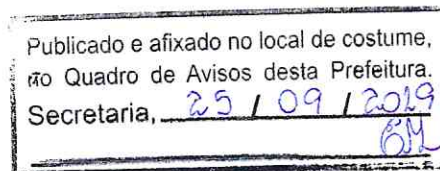 Publicado e afixado no local de costume,
no Quadro de Avisos desta Prefeitura.
Secretaria, 25 / 09 / 2019